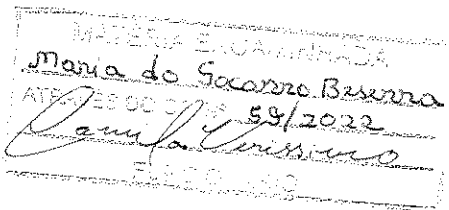 MATÉRIA ENCAMINHADA
Maria do Socorro Beserra
ATRAVÉS DO 59/2022
Camila Verissimo